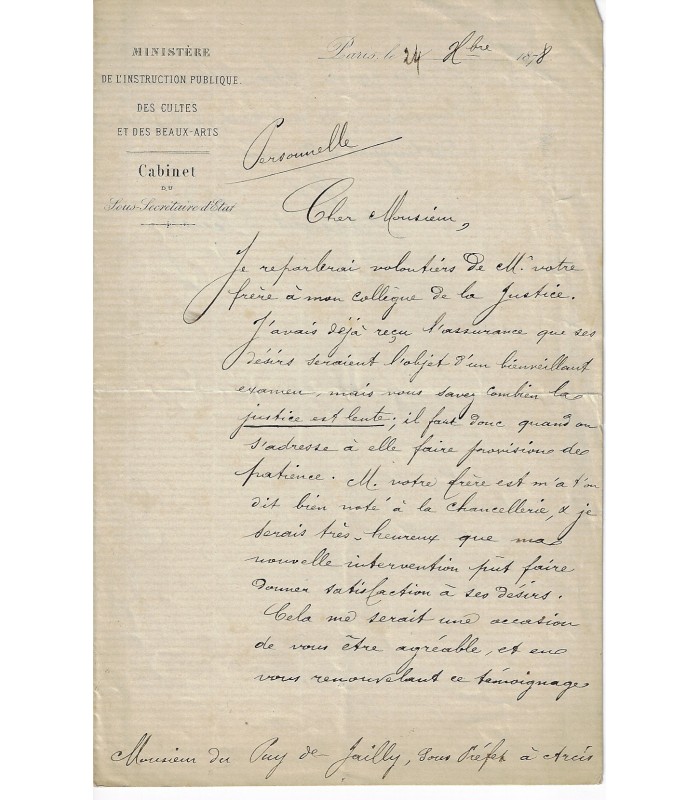 MINISTÈRE
DE L'INSTRUCTION PUBLIQUE,
DES CULTES
ET DES BEAUX-ARTS
Cabinet
DU
Sous-Secrétaire d'Etat
Paris, le 24 Xbre 1878
Personnelle
Cher Monsieur,
Je reparlerai volontiers de Mr votre
frère à mon collègue de la Justice.
J'avais déjà reçu l'assurance que ses
désirs seraient l'objet d'un bienveillant
examen, mais vous savez combien la
justice est lente; il faut donc quand on
s'adresse à elle faire provision de
patience. M. votre frère est m'a t'on
dit bien noté à la chancellerie, & je
serais très-heureux que ma
nouvelle intervention pût faire
donner satisfaction à ses désirs.
Cela me serait une occasion
de vous être agréable, et en
vous renouvelant ce témoignage
Monsieur du Puy de Jailly, Sous Préfet à Arcis